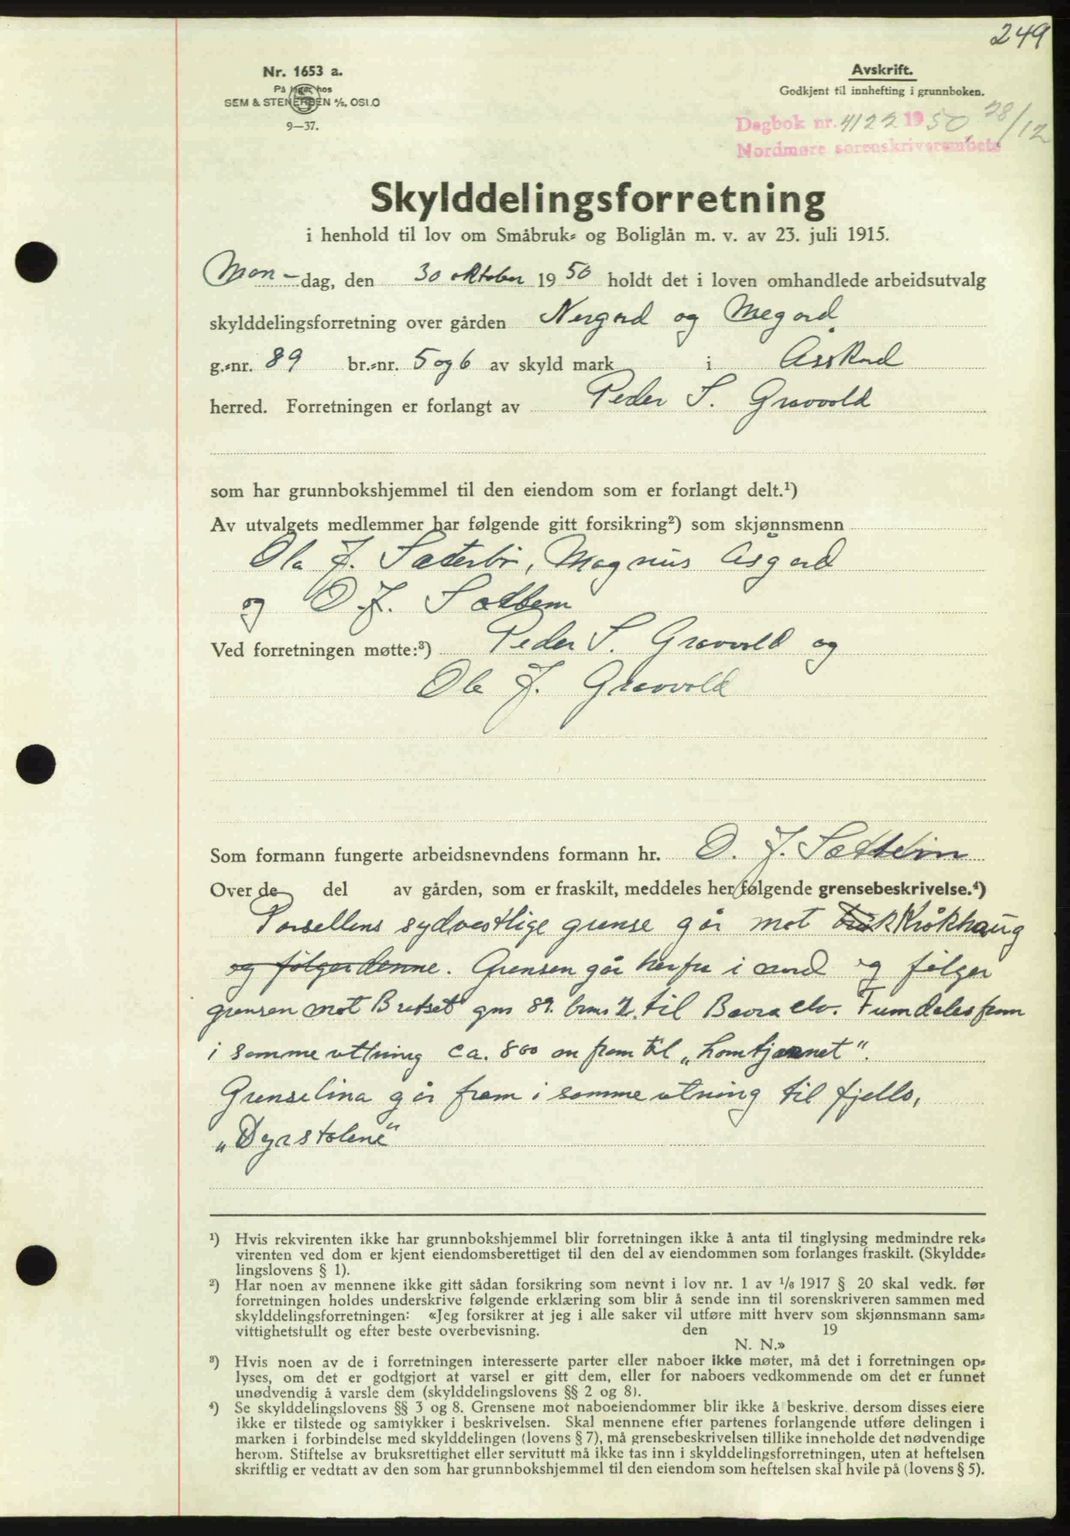 249
Nr. 1653 a.
På lager hos
SEM & STENERSEN A/S, OSLO
9—37.
Avskrift.
Godkjent til innhefting i grunnboken.
Dagbok nr. 4122 1950 28/12
Nordmøre sorenskriverembete
Skylddelingsforretning
i henhold til lov om Småbruk- og Boliglån m. v. av 23. juli 1915.
Man-dag, den 30 oktober 1950 holdt det i loven omhandlede arbeidsutvalg
skylddelingsforretning over gården Nergard og Megard
g.-nr. 89 br.-nr. 5 og 6 av skyld mark i Åsskard
herred. Forretningen er forlangt av Peder S. Gravvold
som har grunnbokshjemmel til den eiendom som er forlangt delt.¹)
Av utvalgets medlemmer har følgende gitt forsikring²) som skjønnsmenn
Ola J. Sæterbø, Magnus Åsgard
og O. J.
Ved forretningen møtte:³) Peder S. Gravvold og
Ole J. Gravvold
Som formann fungerte arbeidsnevndens formann hr. O. J.
Over de del av gården, som er fraskilt, meddeles her følgende grensebeskrivelse.⁴)
Parsellens sydvestlige grense går mot Kråkhaug
og følger denne. Grensen går herfra i nord og følger
grensen mot Bretset gnr 89. brnr 2. til Bævra elv. Fremdeles fram
i samme retning ca. 800 m fram til „Homtjønnet“.
Grenselina går fram i samme retning til fjells,
„Dyrstolene“
¹) Hvis rekvirenten ikke har grunnbokshjemmel blir forretningen ikke å anta til tinglysing medmindre rek-
virenten ved dom er kjent eiendomsberettiget til den del av eiendommen som forlanges fraskilt. (Skyldde-
lingslovens § 1).
²) Har noen av mennene ikke gitt sådan forsikring som nevnt i lov nr. 1 av 1/6 1917 § 20 skal vedk. før
forretningen holdes underskrive følgende erklæring som blir å sende inn til sorenskriveren sammen med
skylddelingsforretningen: «Jeg forsikrer at jeg i alle saker vil utføre mitt hverv som skjønnsmann sam-
vittighetsfullt og efter beste overbevisning. den 19
N. N.»
³) Hvis noen av de i forretningen interesserte parter eller naboer ikke møter, må det i forretningen op-
lyses, om det er godtgjort at varsel er gitt dem, eller for naboers vedkommende om det er funnet
unødvendig å varsle dem (skylddelingslovens §§ 2 og 8).
⁴) Se skylddelingslovens §§ 3 og 8. Grensene mot naboeiendommer blir ikke å beskrive, dersom disses eiere
ikke er tilstede og samtykker i beskrivelsen. Skal mennene efter partenes forlangende utføre delingen i
marken i forbindelse med skylddelingen (lovens § 7), må grensebeskrivelsen tillike inneholde det nødvendige
herom. Stiftelse av bruksrettighet eller servitutt må ikke tas inn i skylddelingsforretningen, uten at heftelsen
skriftlig er vedtatt av den som har grunnbokshjemmel til den eiendom som heftelsen skal hvile på (lovens § 5).